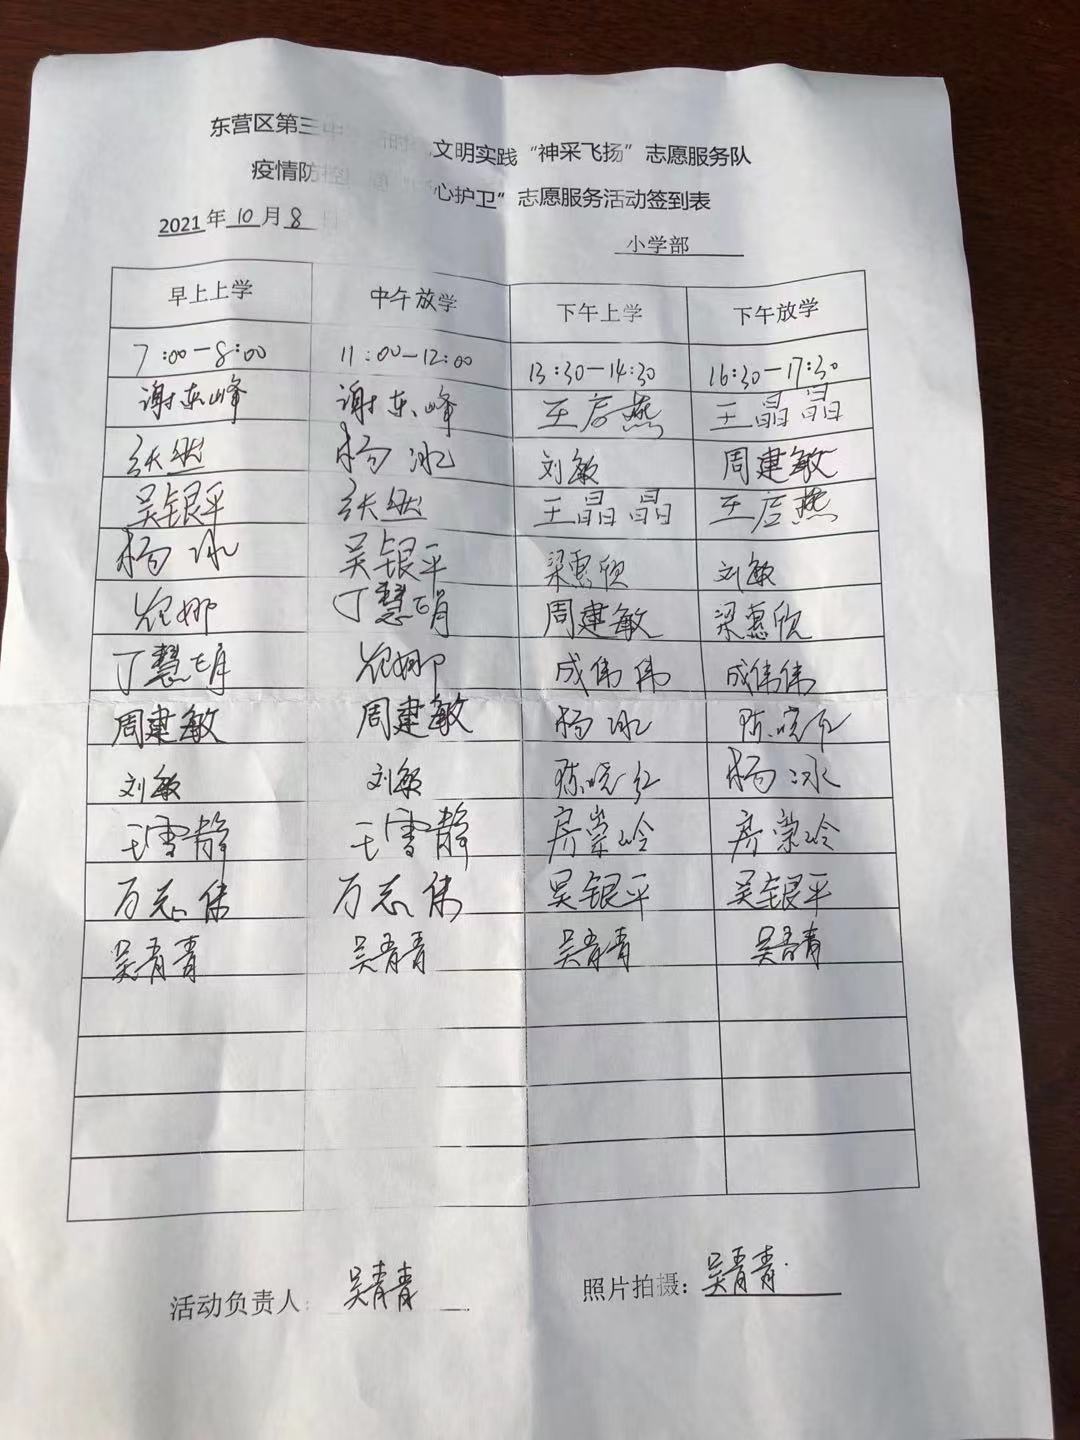 东营区第三中 文明实践“神采飞扬”志愿服务队
疫情防控 心护卫”志愿服务活动签到表
2021年10月8日 小学部
早上上学 中午放学 下午上学 下午放学
7:00—8:00 11:00—12:00 13:30—14:30 16:30—17:30
谢东峰 谢东峰 王后燕 王晶晶
张继 杨冰 刘敏 周建敏
吴银平 张继 王晶晶 王后燕
杨冰 吴银平 梁惠欣 刘敏
娜 丁慧娟 周建敏 梁惠欣
丁慧娟 娜 成伟伟 成伟伟
周建敏 周建敏 杨冰 陈晓红
刘敏 刘敏 陈晓红 杨冰
王雪静 王雪静 房崇岭 房崇岭
万志伟 万志伟 吴银平 吴银平
吴青青 吴青青 吴青青 吴青青
活动负责人：吴青青 照片拍摄：吴青青